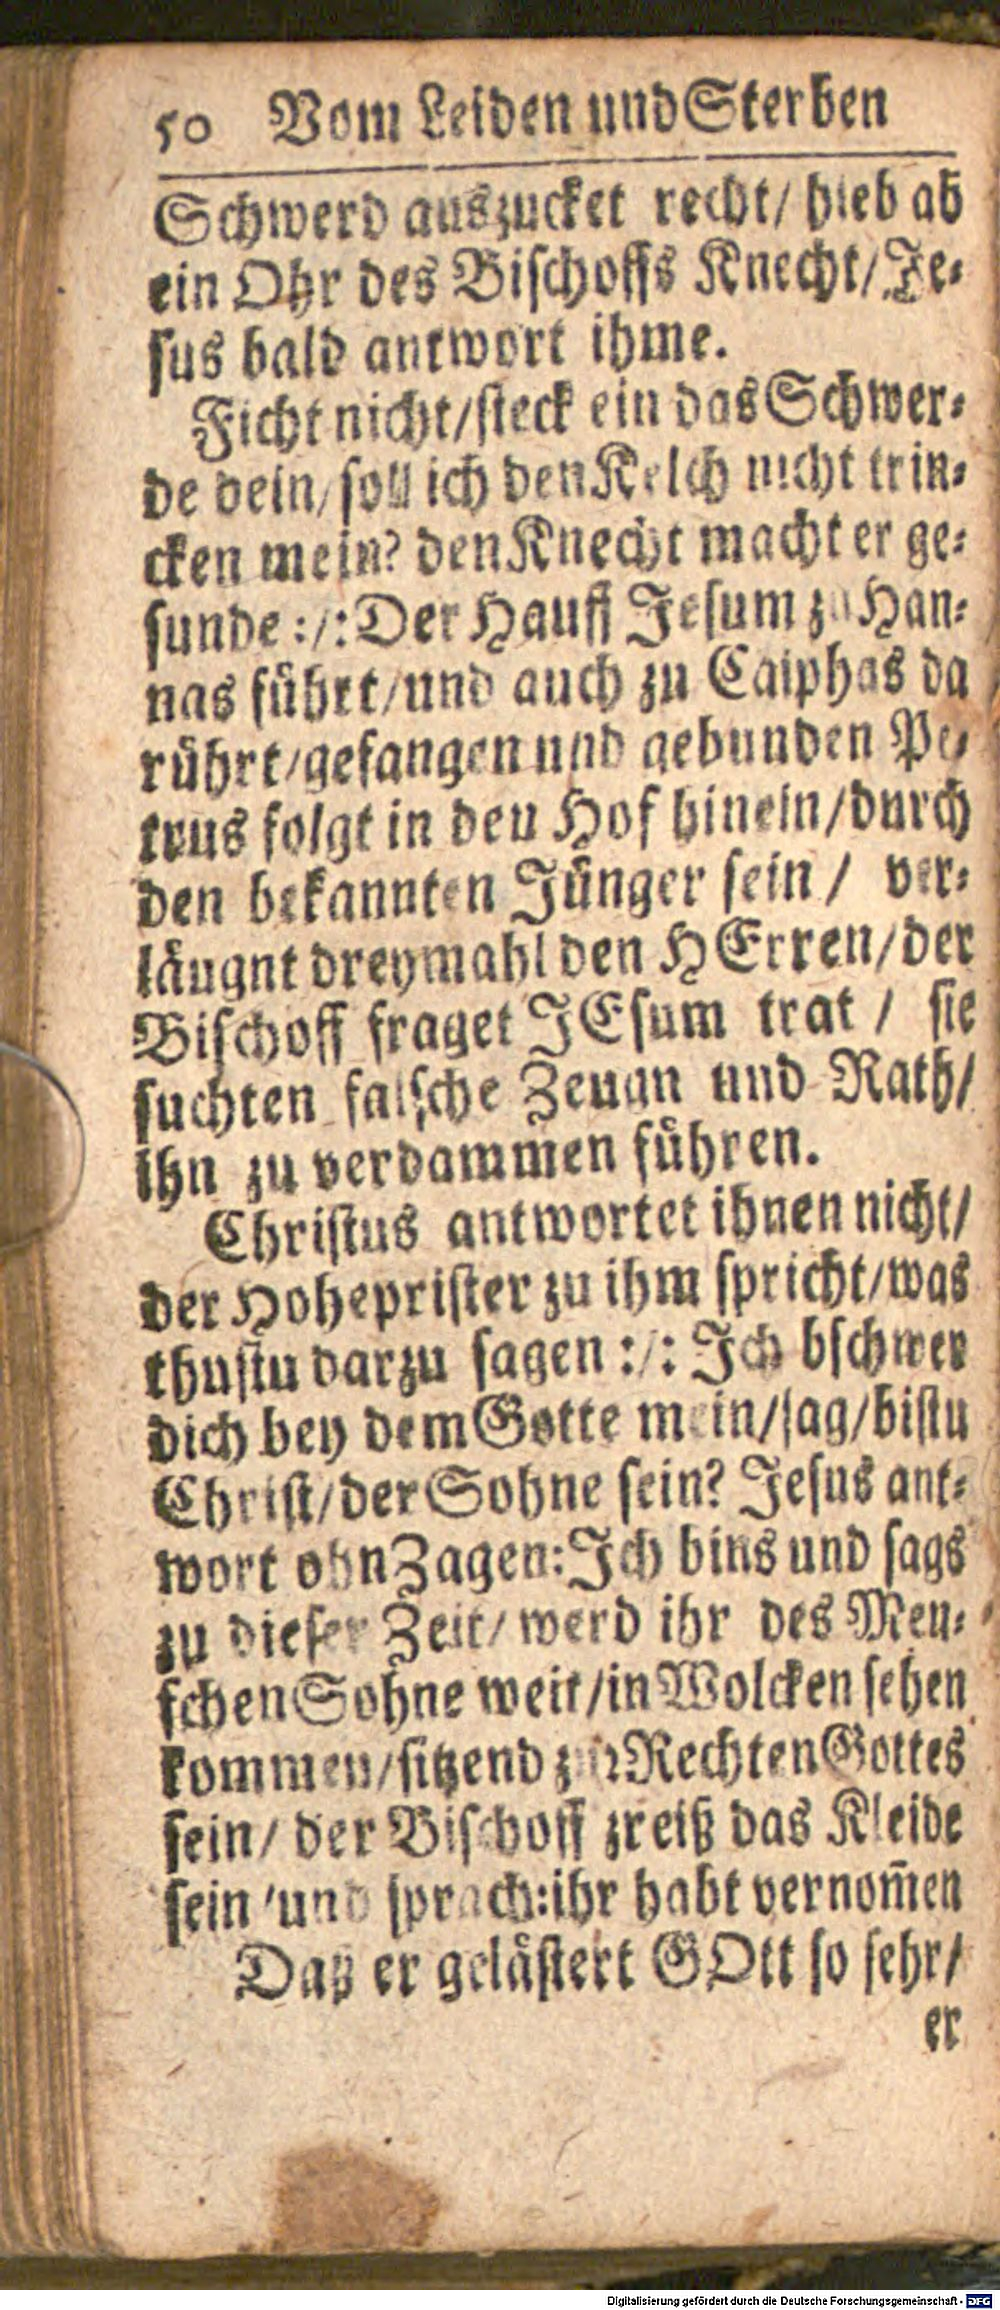 50 Vom Leiden und Sterben
Schwerd auszucket recht/ hieb ab
ein Ohr des Bischoffs Knecht/ Je-
sus bald antwort ihme.
Ficht nicht/ steck ein das Schwer-
de dein/ soll ich den Kelch nicht trin-
cken mein? den Knecht macht er ge-
sunde :/: Der Hauff Jesum zu Han-
nas führt/ und auch zu Caiphas da
rührt/ gefangen und gebunden Pe-
trus folgt in den Hof hinein/ durch
den bekannten Jünger sein/ ver-
läugnt dreymahl den HErren/ der
Bischoff fraget JEsum trat / sie
suchten falsche Zeugn und Rath/
ihn zu verdammen führen.
Christus antwortet ihnen nicht/
der Hoheprister zu ihm spricht/ was
thustu darzu sagen :/: Ich bschwer
dich bey dem Gotte mein/ sag/ bistu
Christ/ der Sohne sein? Jesus ant-
wort ohn Zagen: Ich bins und sags
zu dieser Zeit/ werd ihr des Men-
schen Sohne weit/ in Wolcken sehen
kommen/ sitzend zur Rechten Gottes
sein/ der Bischoff zreiß das Kleide
sein/ und sprach: ihr habt vernom̄en
Daß er gelästert GOtt so sehr/
er
Digitalisierung gefördert durch die Deutsche Forschungsgemeinschaft - DFG